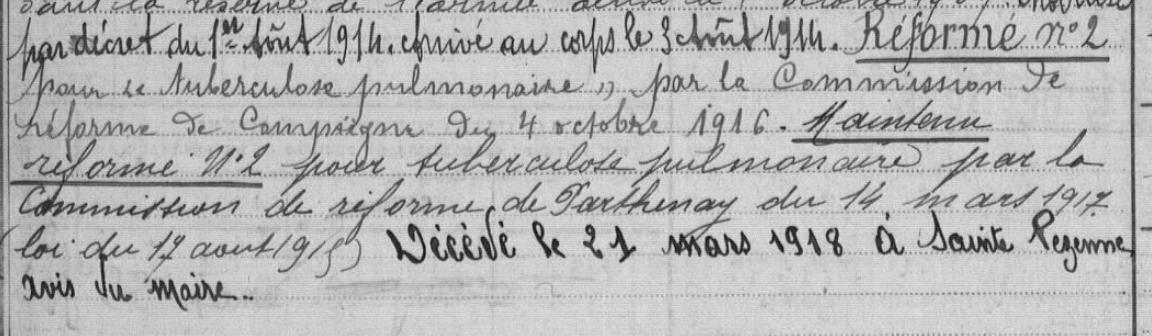 dans la réserve de l'armée active le 1 octobre
par décret du 1er Août 1914. Arrivé au corps le 3 Août 1914. Réformé n°2
pour « tuberculose pulmonaire » par la Commission de
réforme de Compiègne du 4 octobre 1916. Maintenu
réformé N°2 pour tuberculose pulmonaire par la
Commission de réforme de Parthenay du 14 mars 1917.
(loi du 17 aout 1915) Décédé le 21 mars 1918 à Sainte Pezenne
avis du maire.